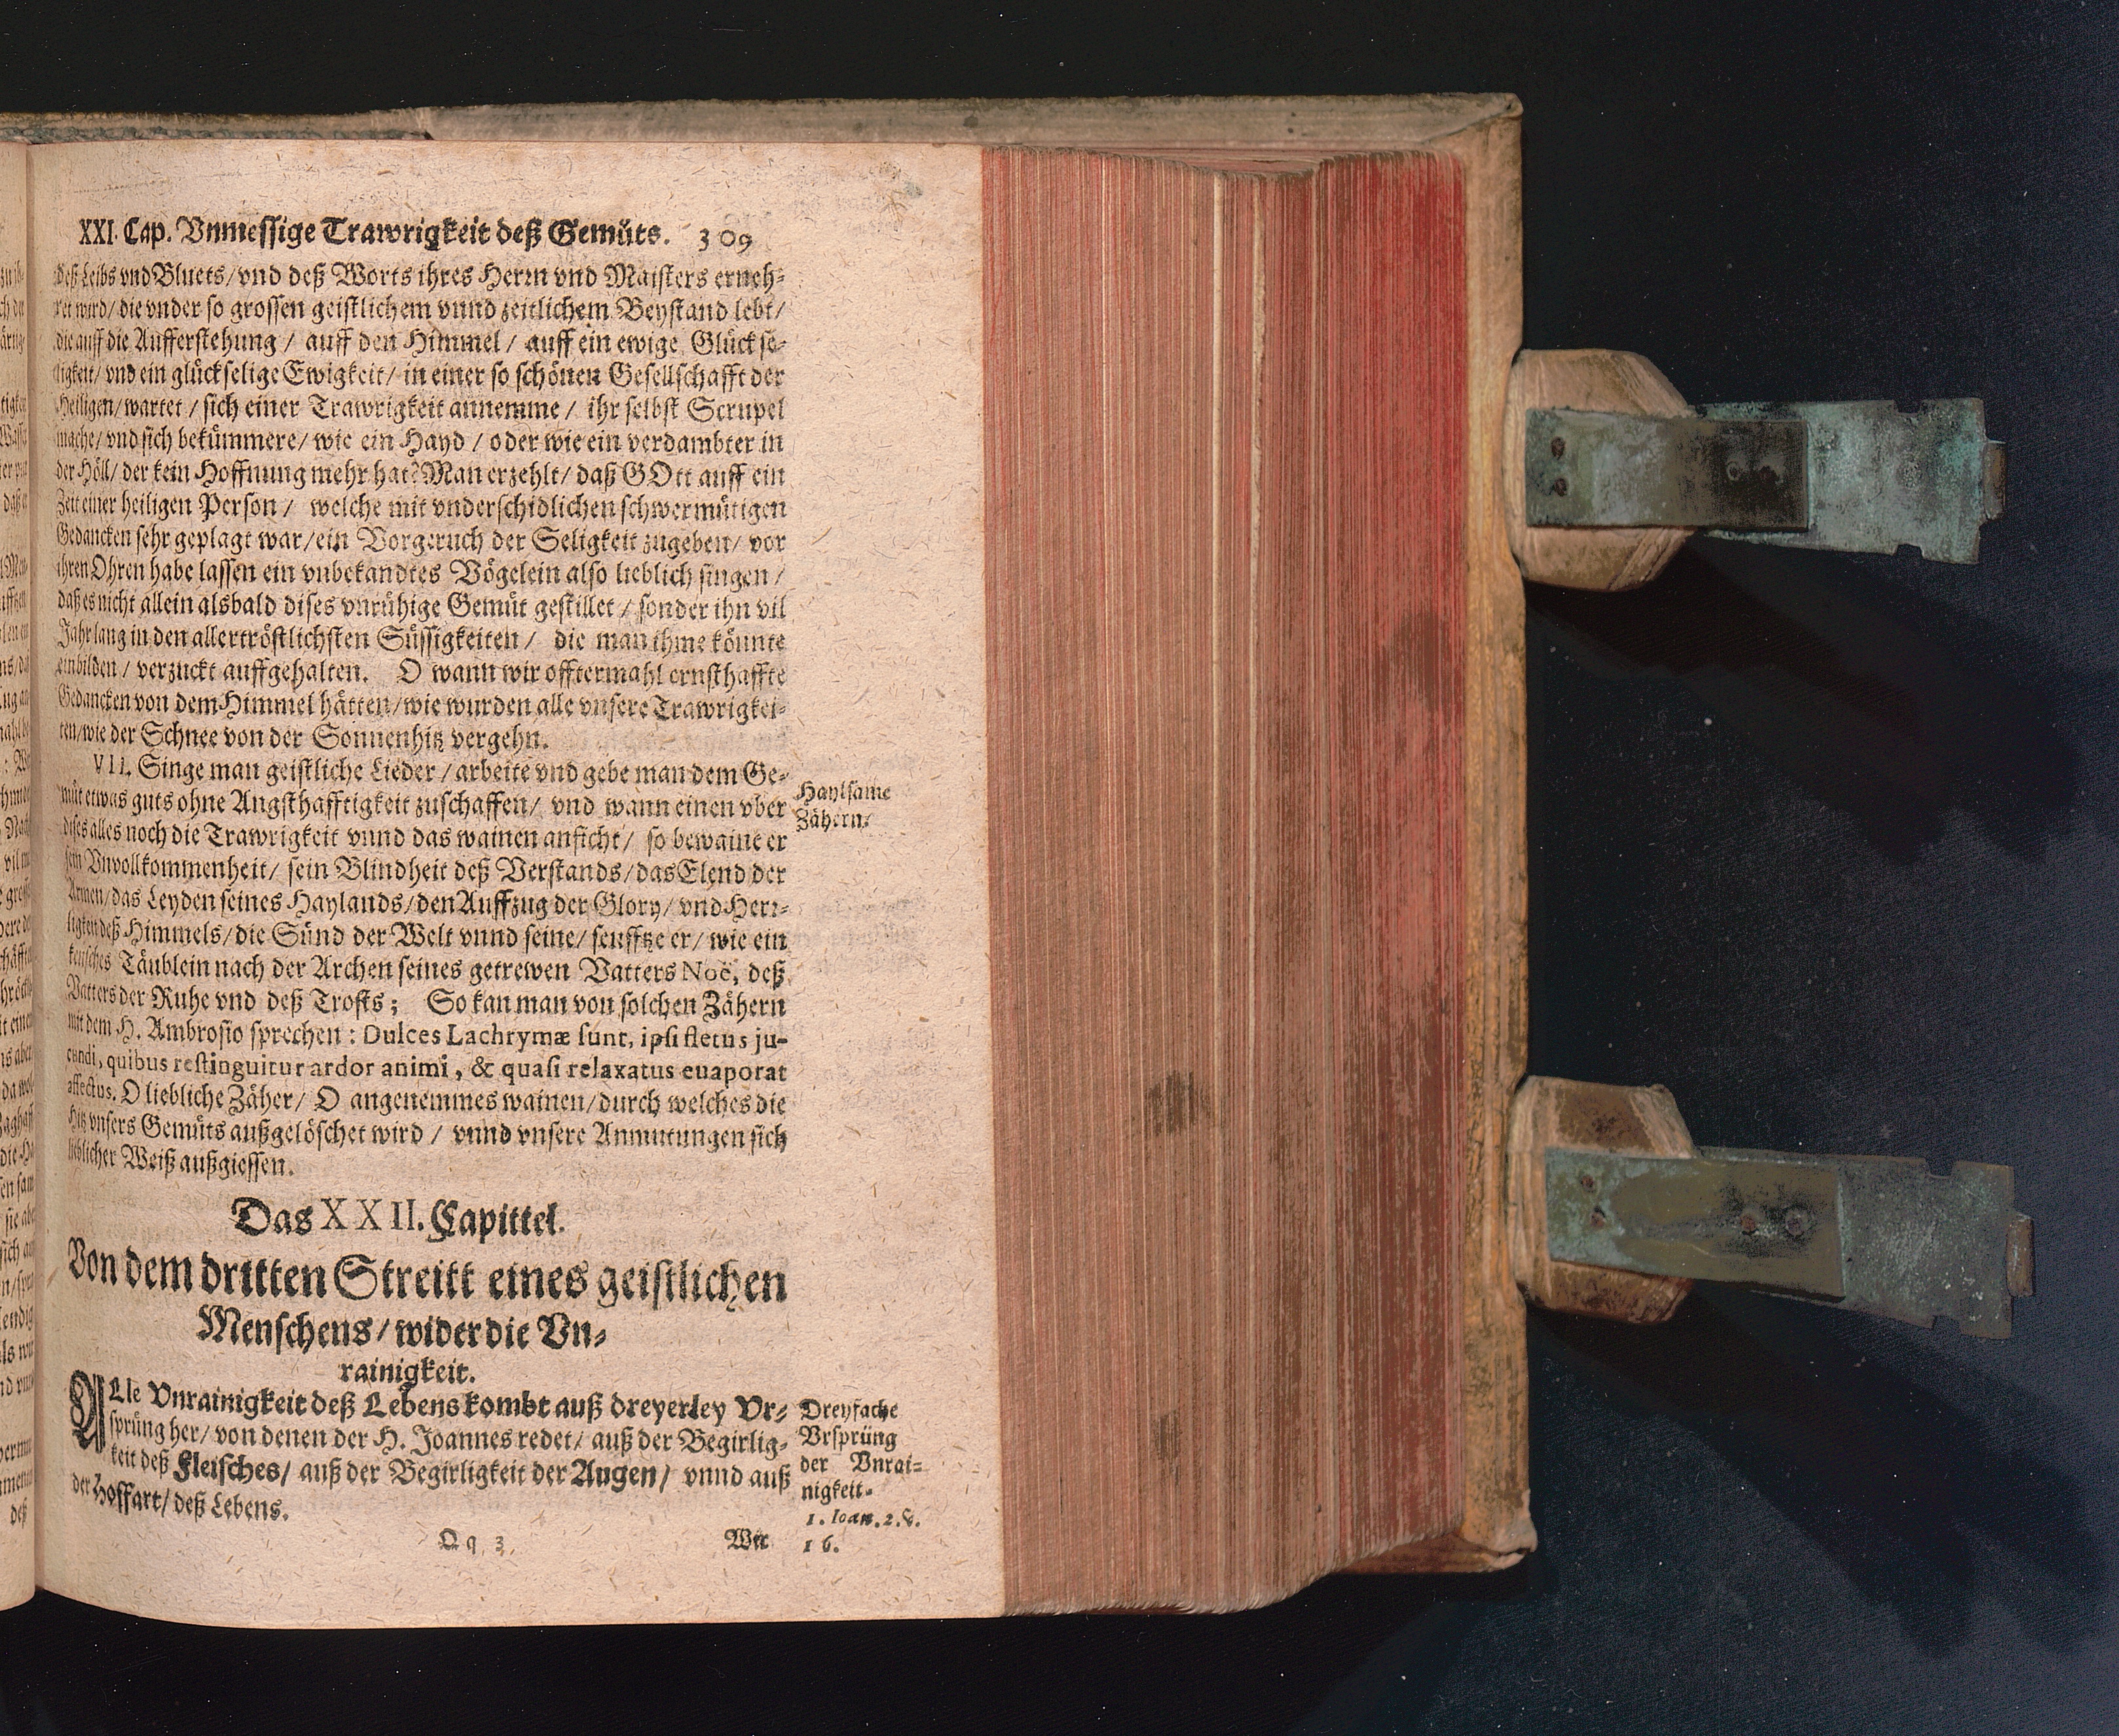 XXI. Cap. Vnmessige Trawrigkeit deß Gemüts. 309
deß Leibs vnd Bluets/ vnd deß Worts ihres Herrn vnd Maisters erneh-
ret wird/ die vnder so grossen geistlichem vnnd zeitlichem Beystand lebt/
die auff die Aufferstehung / auff den Himmel / auff ein ewige Glückse-
ligkeit/ vnd ein glückselige Ewigkeit/ in einer so schönen Gesellschafft der
Heiligen/ wartet / sich einer Trawrigkeit annemme / ihr selbst Scrupel
mache/ vnd sich bekümmere/ wie ein Hayd / oder wie ein verdambter in
der Höll/ der kein Hoffnung mehr hat? Man erzehlt/ daß GOtt auff ein
Zeit einer heiligen Person / welche mit vnderschidlichen schwermütigen
Gedancken sehr geplagt war/ ein Vorgeruch der Seligkeit zugeben/ vor
ihren Ohren habe lassen ein vnbekandtes Vögelein also lieblich singen /
daß es nicht allein alsbald dises vnrühige Gemüt gestillet / sonder ihn vil
Jahr lang in den allertröstlichsten Süssigkeiten / die man ihme könnte
einbilden / verzuckt auffgehalten. O wann wir offtermahl ernsthaffte
Gedancken von dem Himmel hätten/ wie wurden alle vnsere Trawrigkei-
ten/ wie der Schnee von der Sonnenhitz vergehn.
VII. Singe man geistliche Lieder / arbeite vnd gebe man dem Ge-
müt etwas guts ohne Angsthafftigkeit zuschaffen/ vnd wann einen vber
dises alles noch die Trawrigkeit vnnd das wainen anficht/ so bewaint er
sein Vnvollkommenheit/ sein Blindheit deß Verstands/ das Elend der
Armen/ das Leyden seines Haylands/ den Auffzug der Glory/ vnd Herr-
ligkeit deß Himmels/ die Sünd der Welt vnnd seine/ seufftze er/ wie ein
keusches Täublein nach der Archen seines getrewen Vatters Noë, deß
Vatters der Ruhe vnd deß Trosts; So kan man von solchen Zähern
mit dem H. Ambrosio sprechen: Dulces Lachrymæ sunt, ipsi fletus ju-
cundi, quibus restinguitur ardor animi, & quasi relaxatus euaporat
affectus. O liebliche Zäher/ O angenemmes wainen/ durch welches die
Hitz vnsers Gemüts außgelöschet wird / vnnd vnsere Anmutungen sich
lieblicher Weiß außgiessen.
Haylsame
Zähern.
Das XXII. Capittel.
Von dem dritten Streitt eines geistlichen
Menschens/ wider die Vn-
rainigkeit.
ALle Vnrainigkeit deß Lebens kombt auß dreyerley Vr-
sprüng her/ von denen der H. Joannes redet/ auß der Begirlig-
keit deß Fleisches/ auß der Begirligkeit der Augen/ vnnd auß
der Hoffart/ deß Lebens.
Dreyfache
Vrsprüng
der Vnrai-
nigkeit.
1. Ioan. 2. v.
16.
Qq 3 Wir